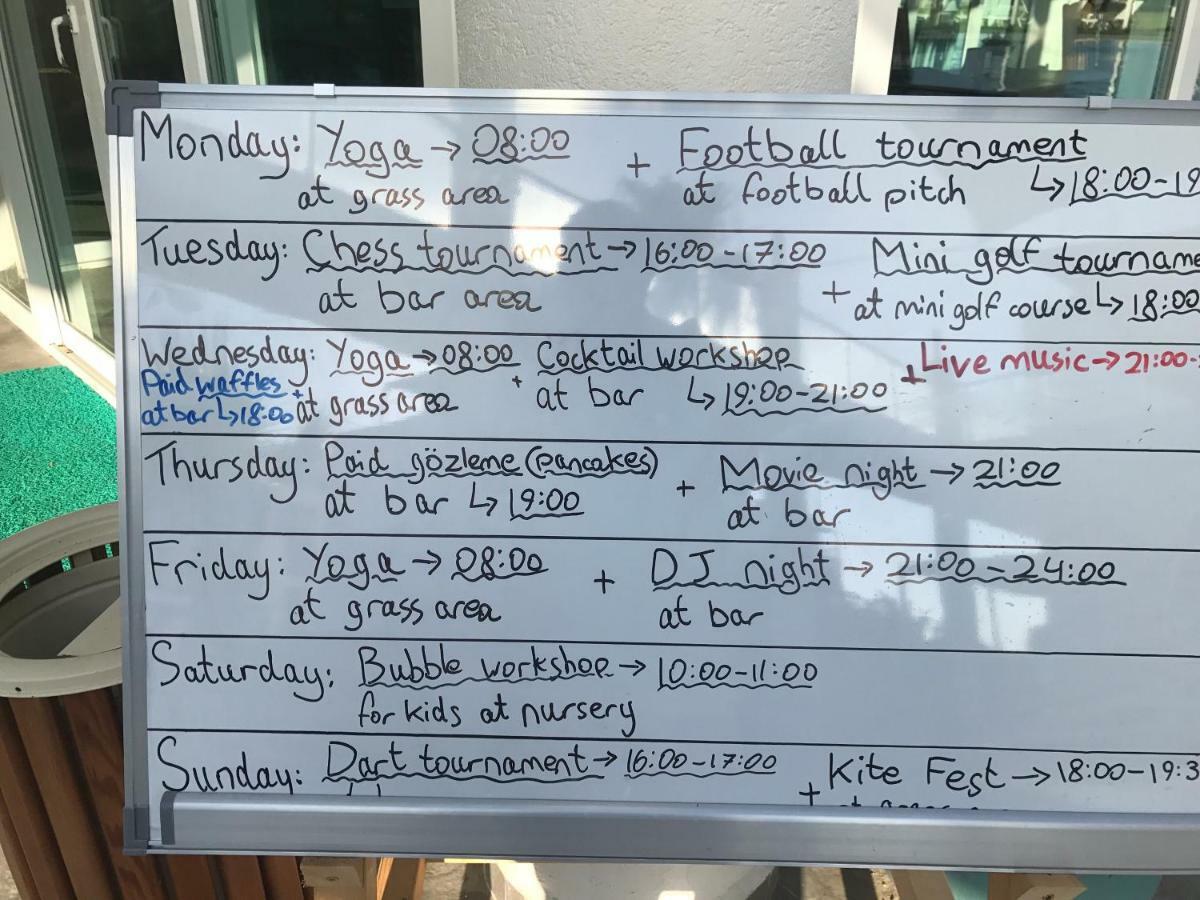 Monday: Yoga → 08:00 + Football tournament
at grass area at football pitch ↳ 18:00-19
Tuesday: Chess tournament → 16:00-17:00 + Mini golf
at bar area at mini golf course ↳ 18:00
Wednesday: Yoga → 08:00 + Cocktail workshop + Live music → 21:00-
Paid waffles +
at bar ↳ 18:00 at grass area at bar ↳ 19:00-21:00
Thursday: Paid gözleme (pancakes) + Movie night → 21:00
at bar ↳ 19:00 at bar
Friday: Yoga → 08:00 + DJ night → 21:00-24:00
at grass area at bar
Saturday: Bubble workshop → 10:00-11:00
for kids at nursery
Sunday: Dart tournament → 16:00-17:00 + Kite Fest → 18:00-19:3